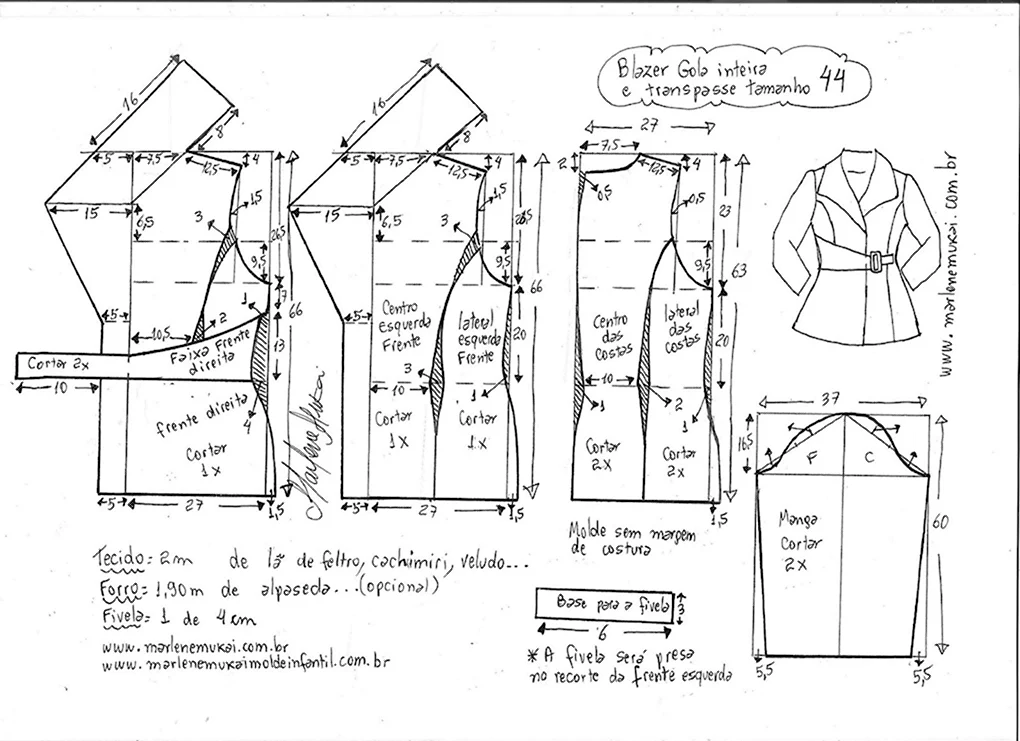 Blazer Gola inteira
e transpasse tamanho 44
16
8
5
7,5
12,5
4
15
6,5
3
1,5
26,5
9,5
7
66
5
10,5
2
1
13
Cortar 2x
Faixa Frente
direita
10
frente direita
4
Cortar
1x
5
27
1,5
Marlene Mukai
16
8
5
7,5
12,5
4
15
6,5
3
1,5
9,5
66
5
Centro
Esquerda
Frente
lateral
esquerda
Frente
20
3
10
1
Cortar
1x
Cortar
1x
5
27
1,5
27
7,5
2
4
12,5
0,5
0,5
23
9,5
63
Centro
das
costas
lateral
das
costas
20
10
1
2
1
Cortar
2x
Cortar
2x
1,5
www.marlenemukai.com.br
37
16,5
F
C
60
Manga
Cortar
2x
5,5
5,5
Molde sem margem
de costura
Tecido = 2m de lã de feltro, cachimiri, veludo...
Forro = 1,90m de alpaseda...(opcional)
Fivela = 1 de 4 cm
www.marlenemukai.com.br
www.marlenemukaimoldeinfantil.com.br
Base para a fivela
3
6
* A fivela será presa
no recorte da frente esquerda